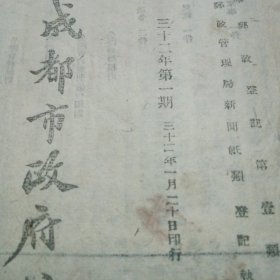 郵政登記第壹類
郵政管理局新聞紙類登記執
三十二年第一期　三十二年一月二十日印行
成都市政府